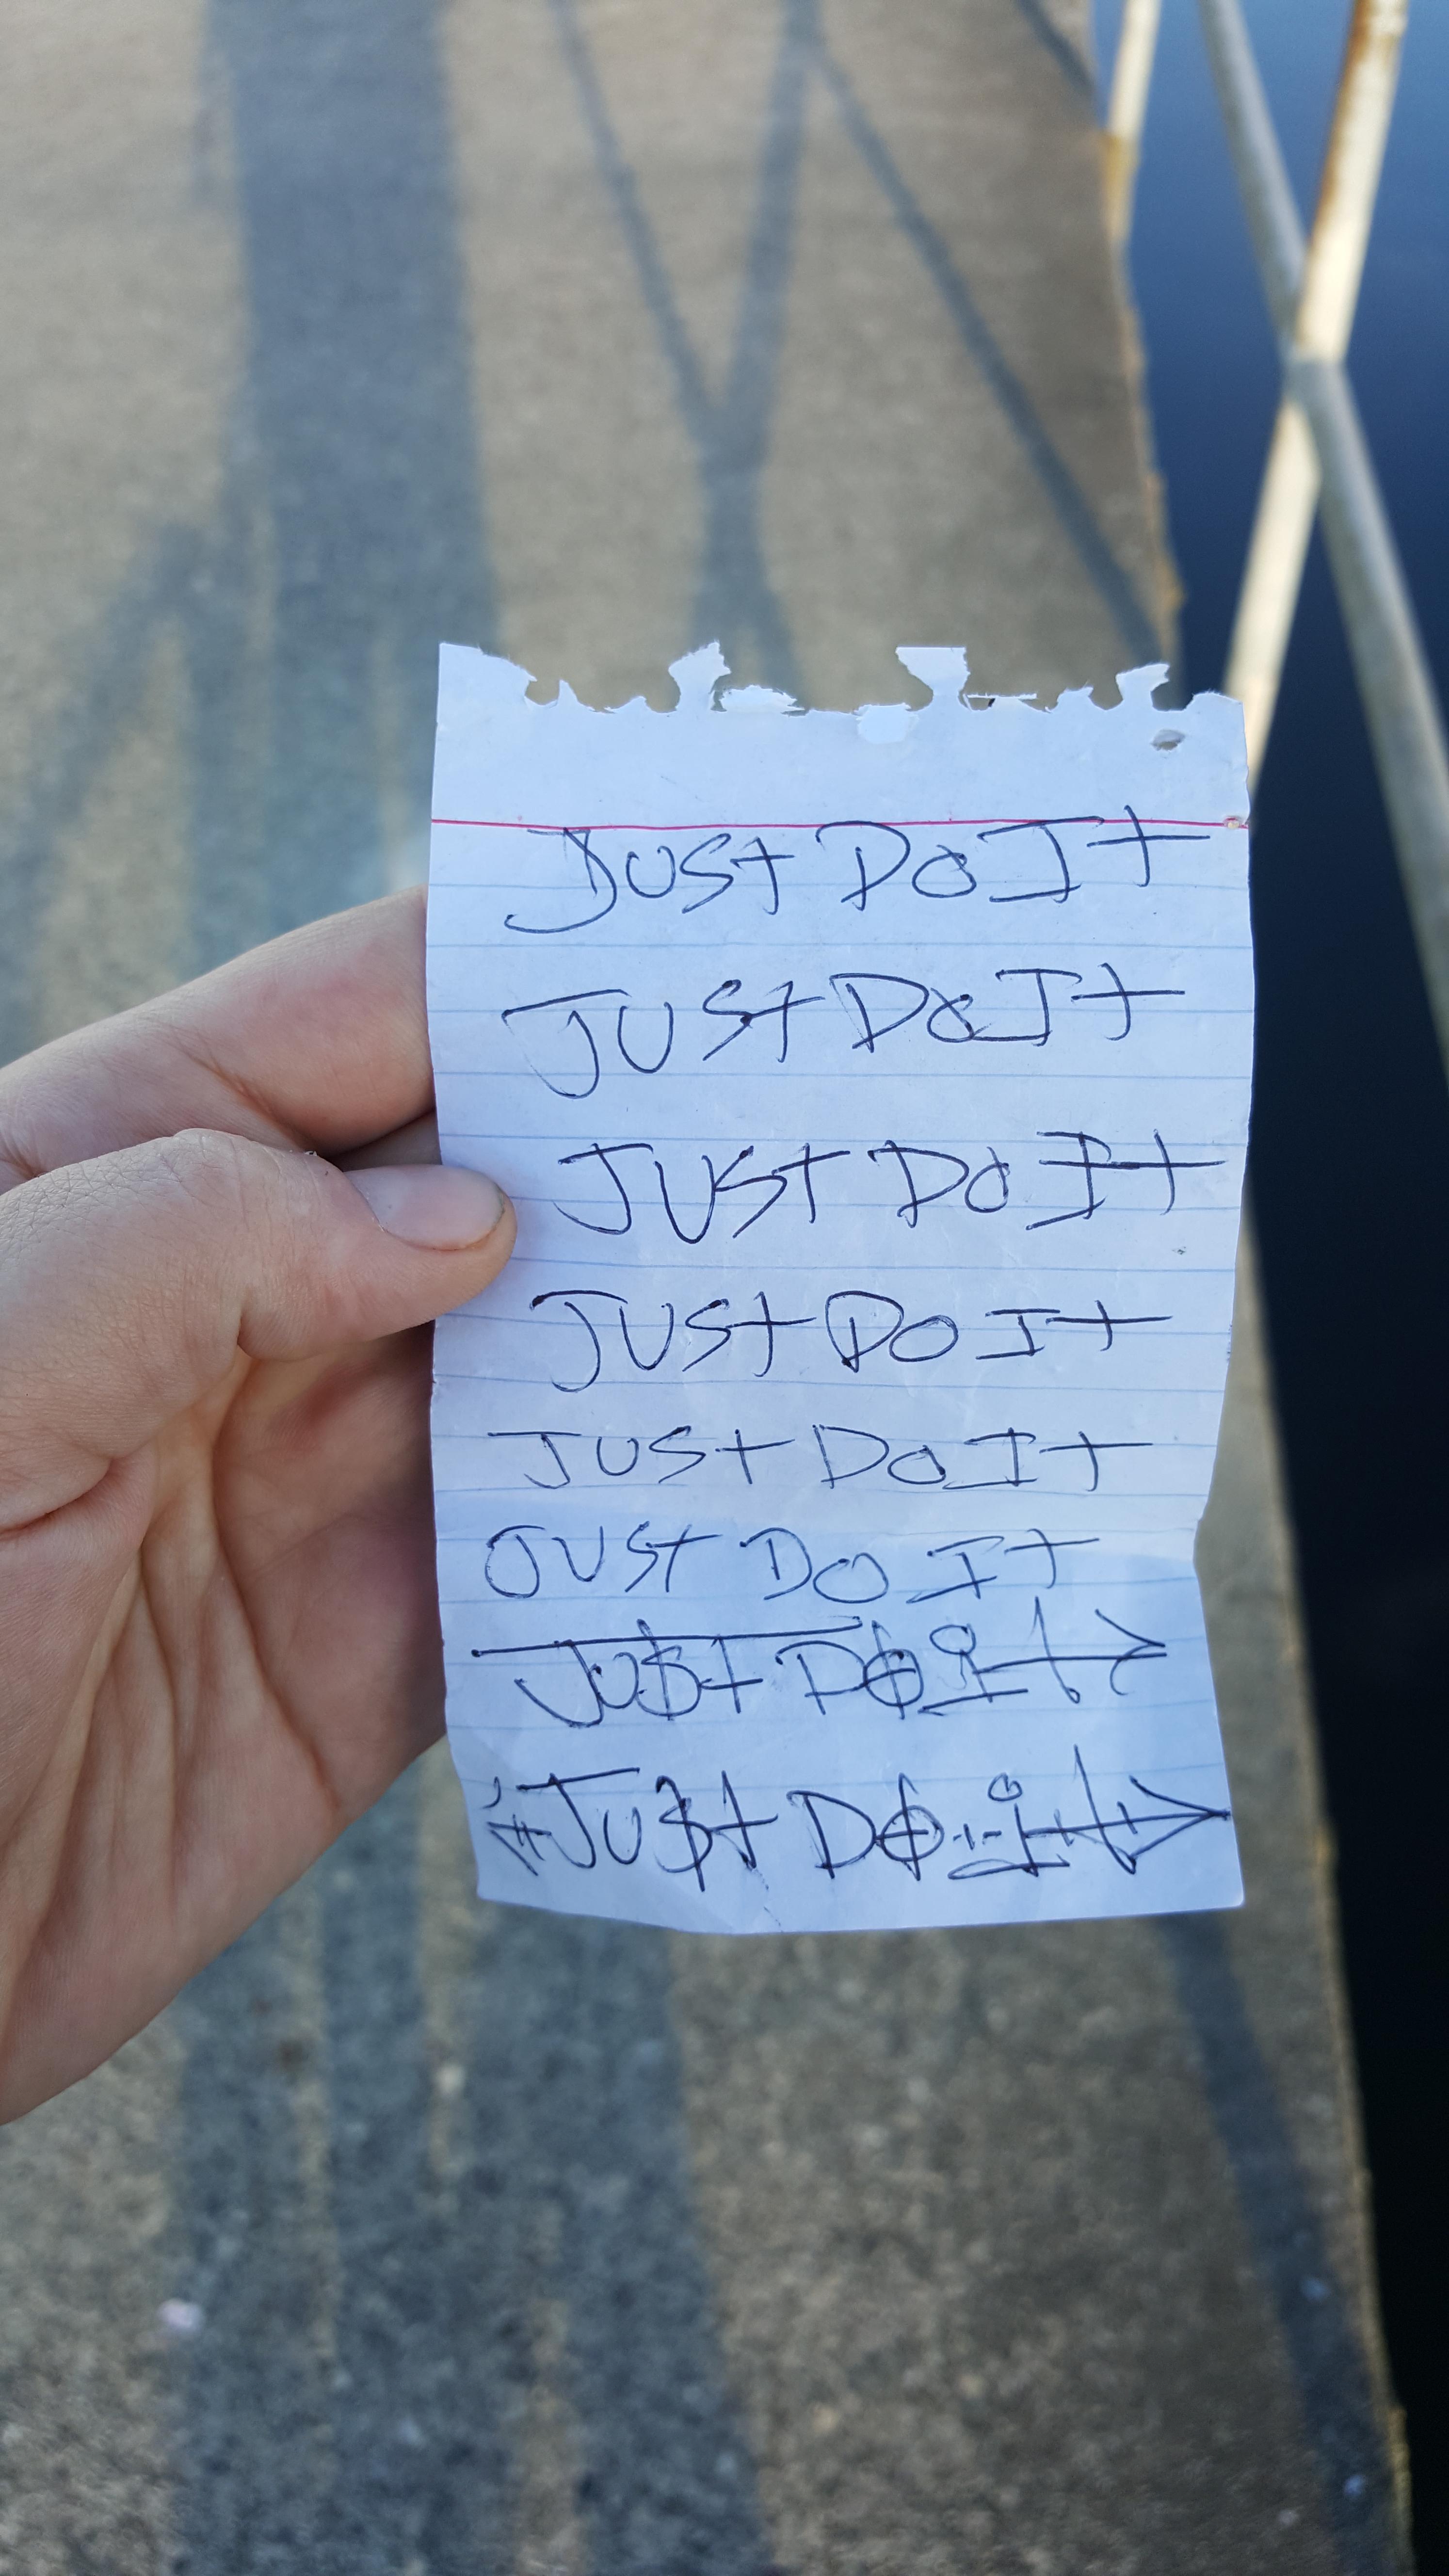 JUST DO IT
JUST DO IT
JUST DO IT
JUST DO IT
JUST DO IT
JUST DO IT
JU$T DO iT
#JU$T DO iT